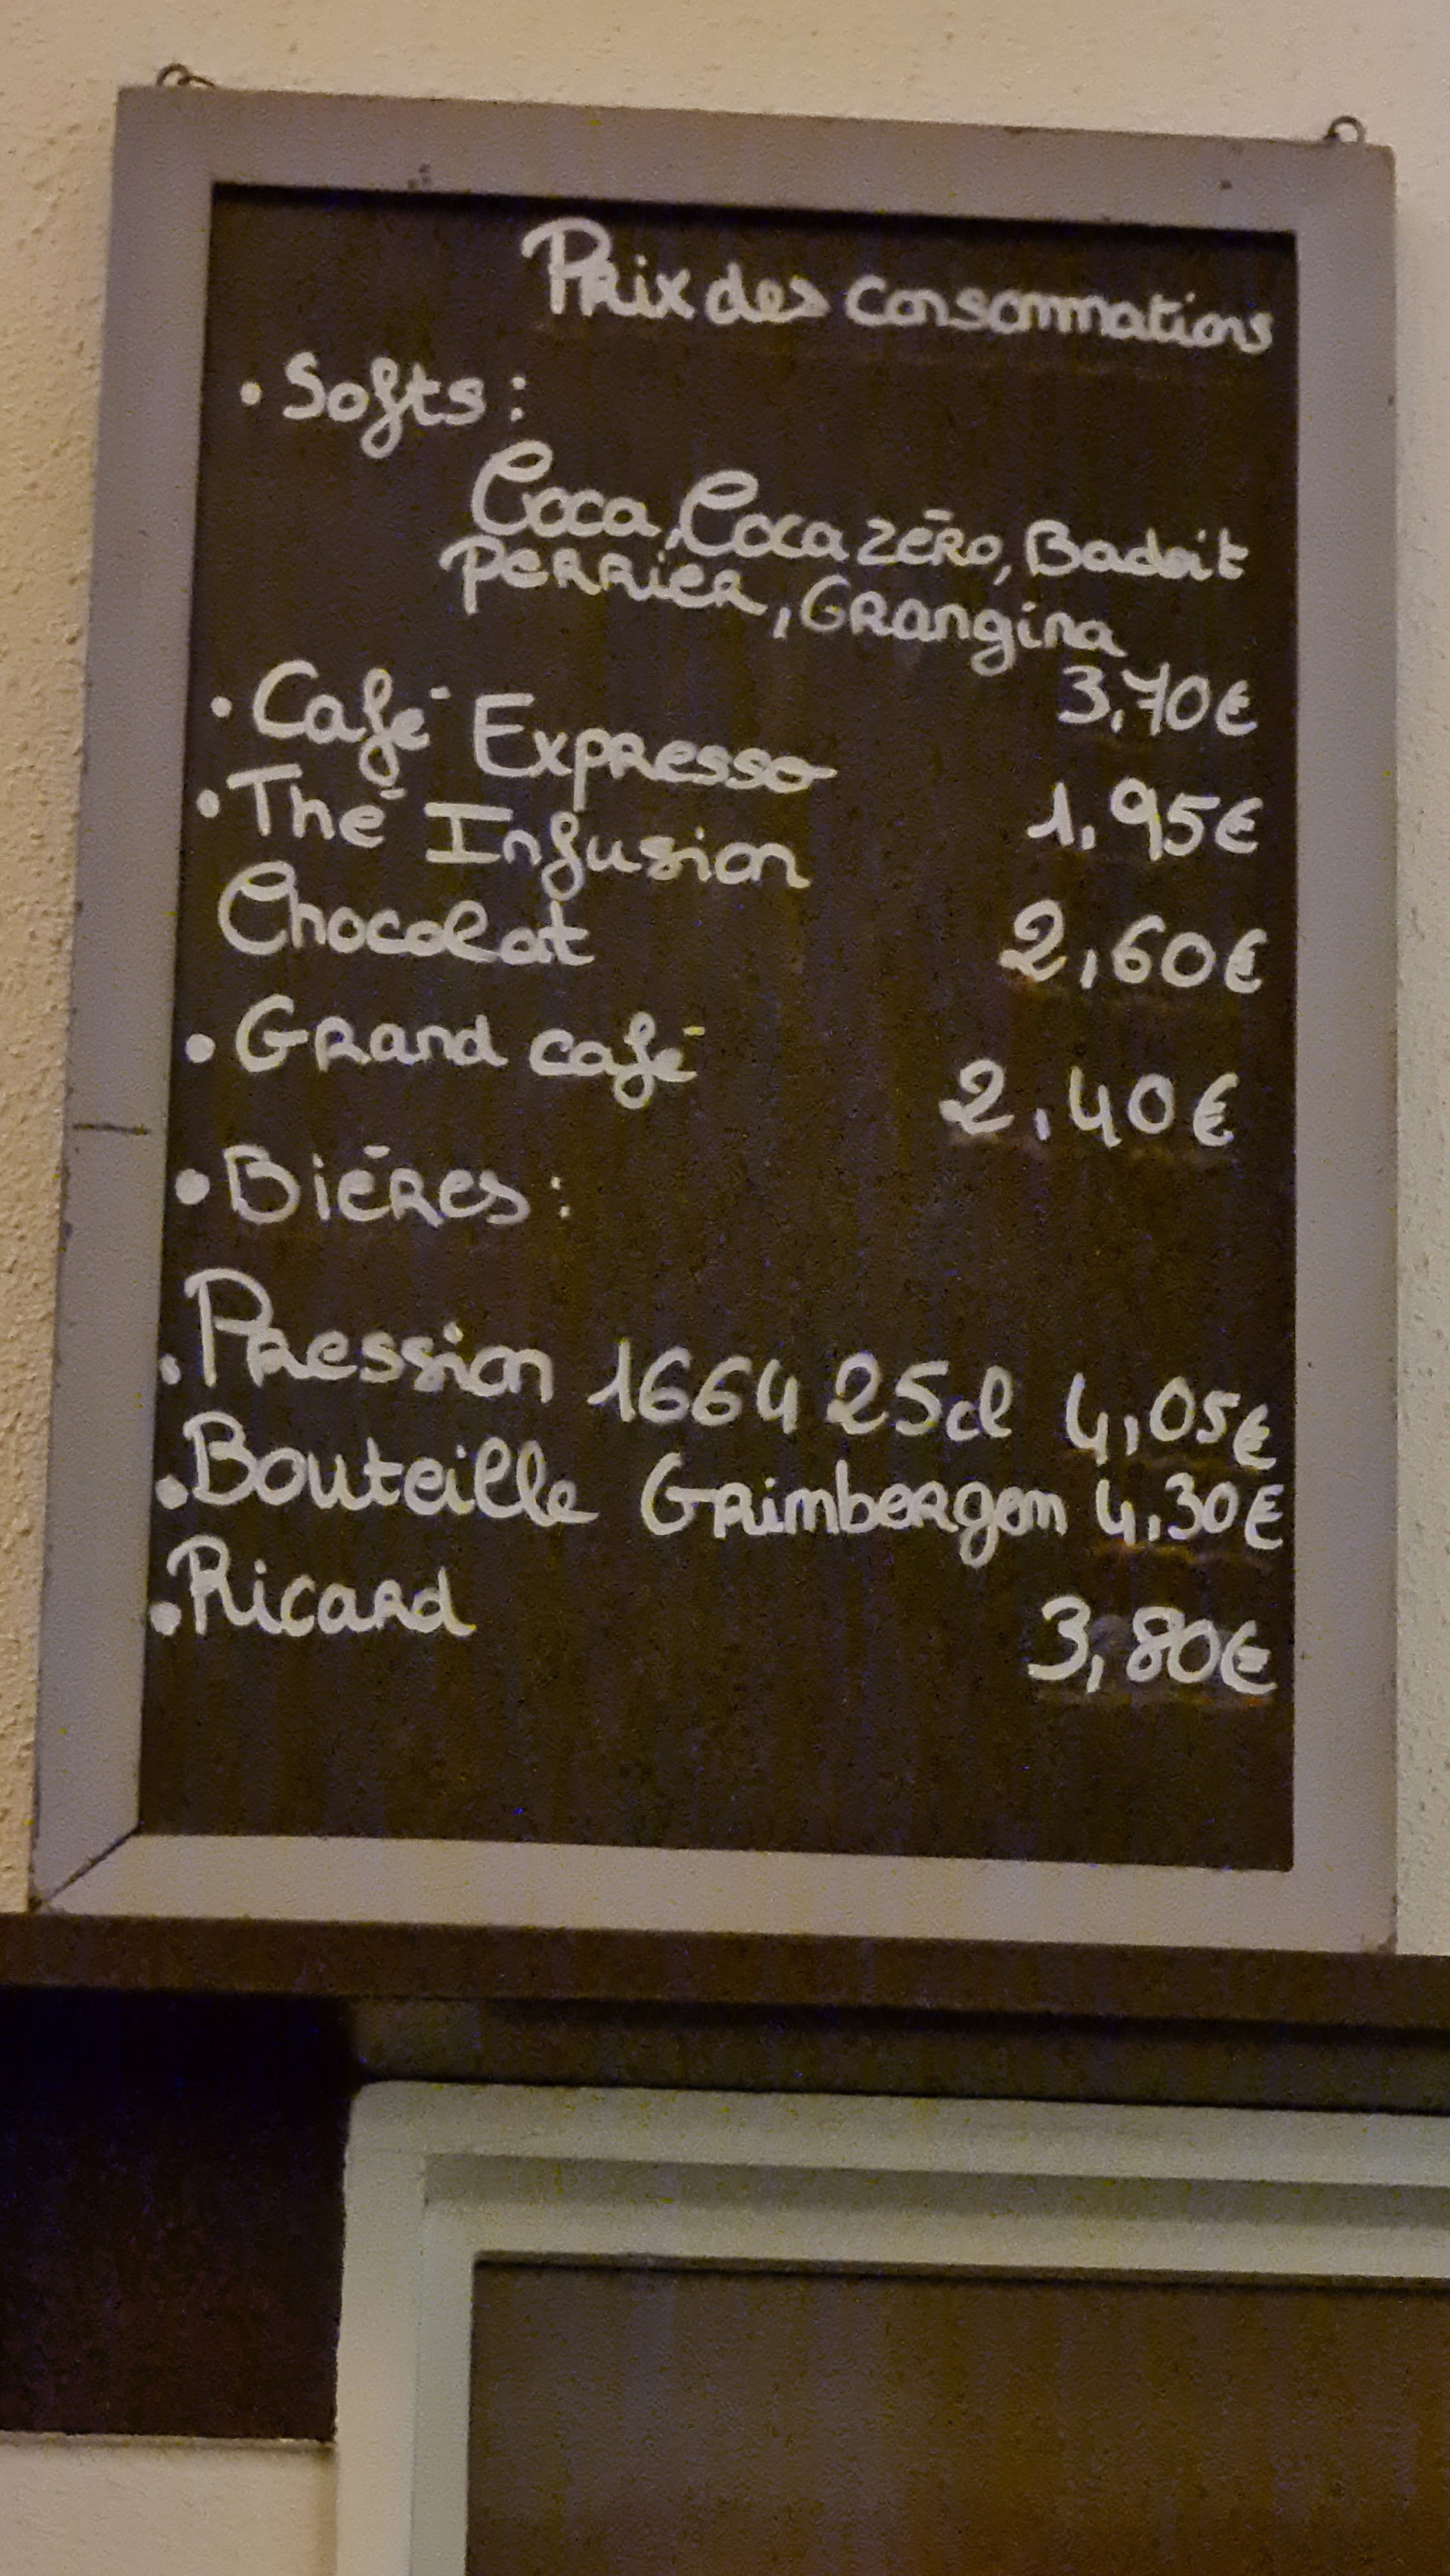 Prix des consommations
• Softs :
Coca, Coca zéro, Badoit
Perrier, Orangina
3,70€
• Café Expresso 1,95€
• Thé Infusion
Chocolat 2,60€
• Grand café 2,40€
• Bières :
. Pression 1664 25cl 4,05€
. Bouteille Grimbergen 4,30€
. Ricard 3,80€